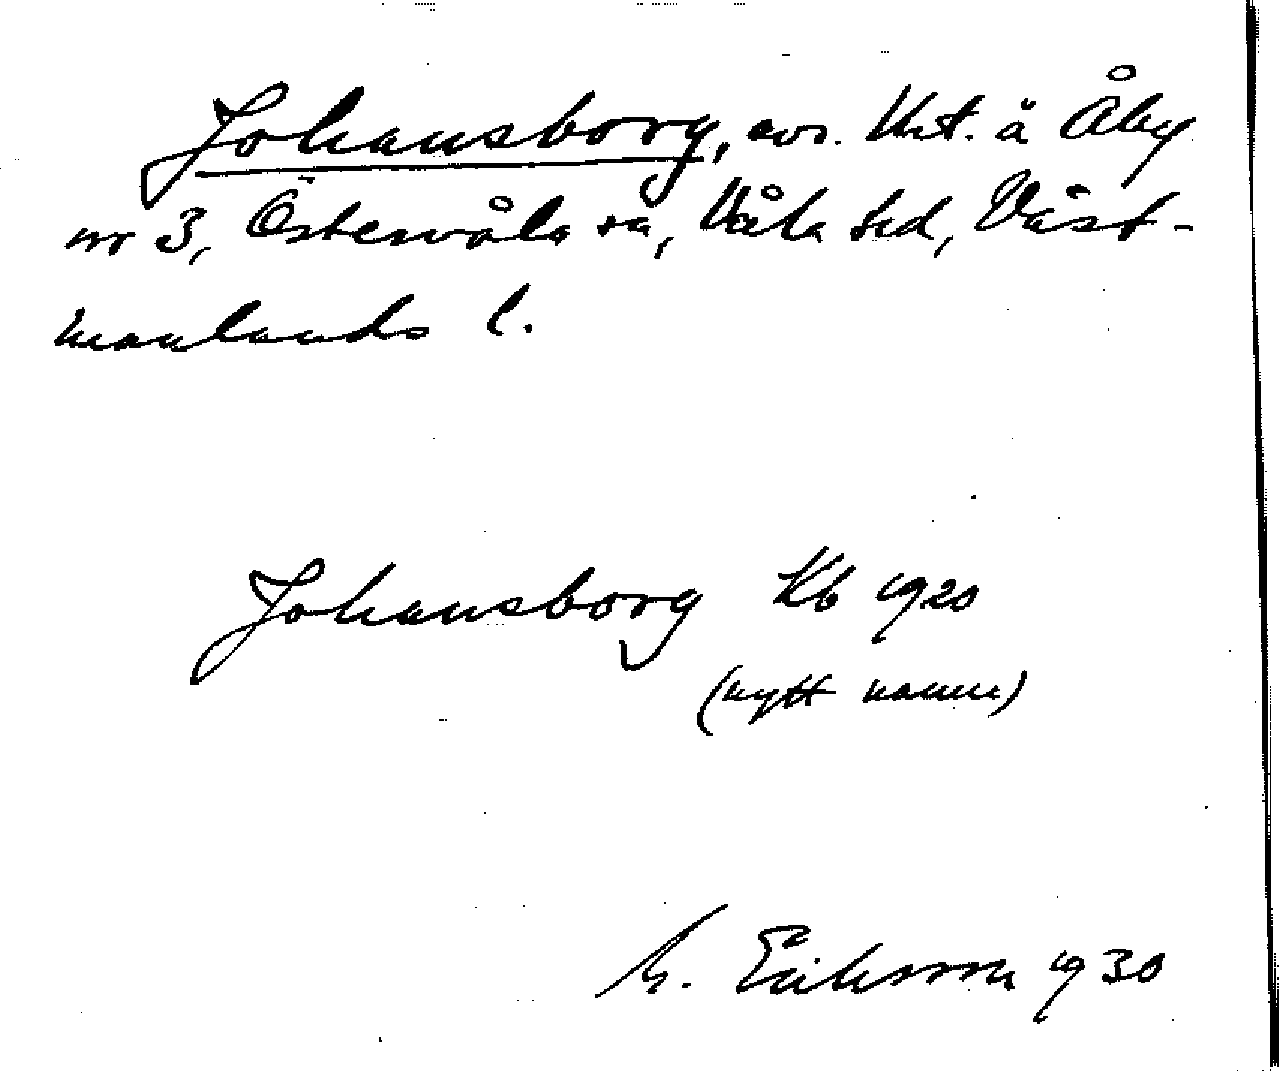 Johansborg, avs. Urt. å Åby
nr 3, Östervåla sn, Våla hd, Väst-
manlands l.
Johansborg Kb 1920
(nytt namn)
M. Eriksson 1930